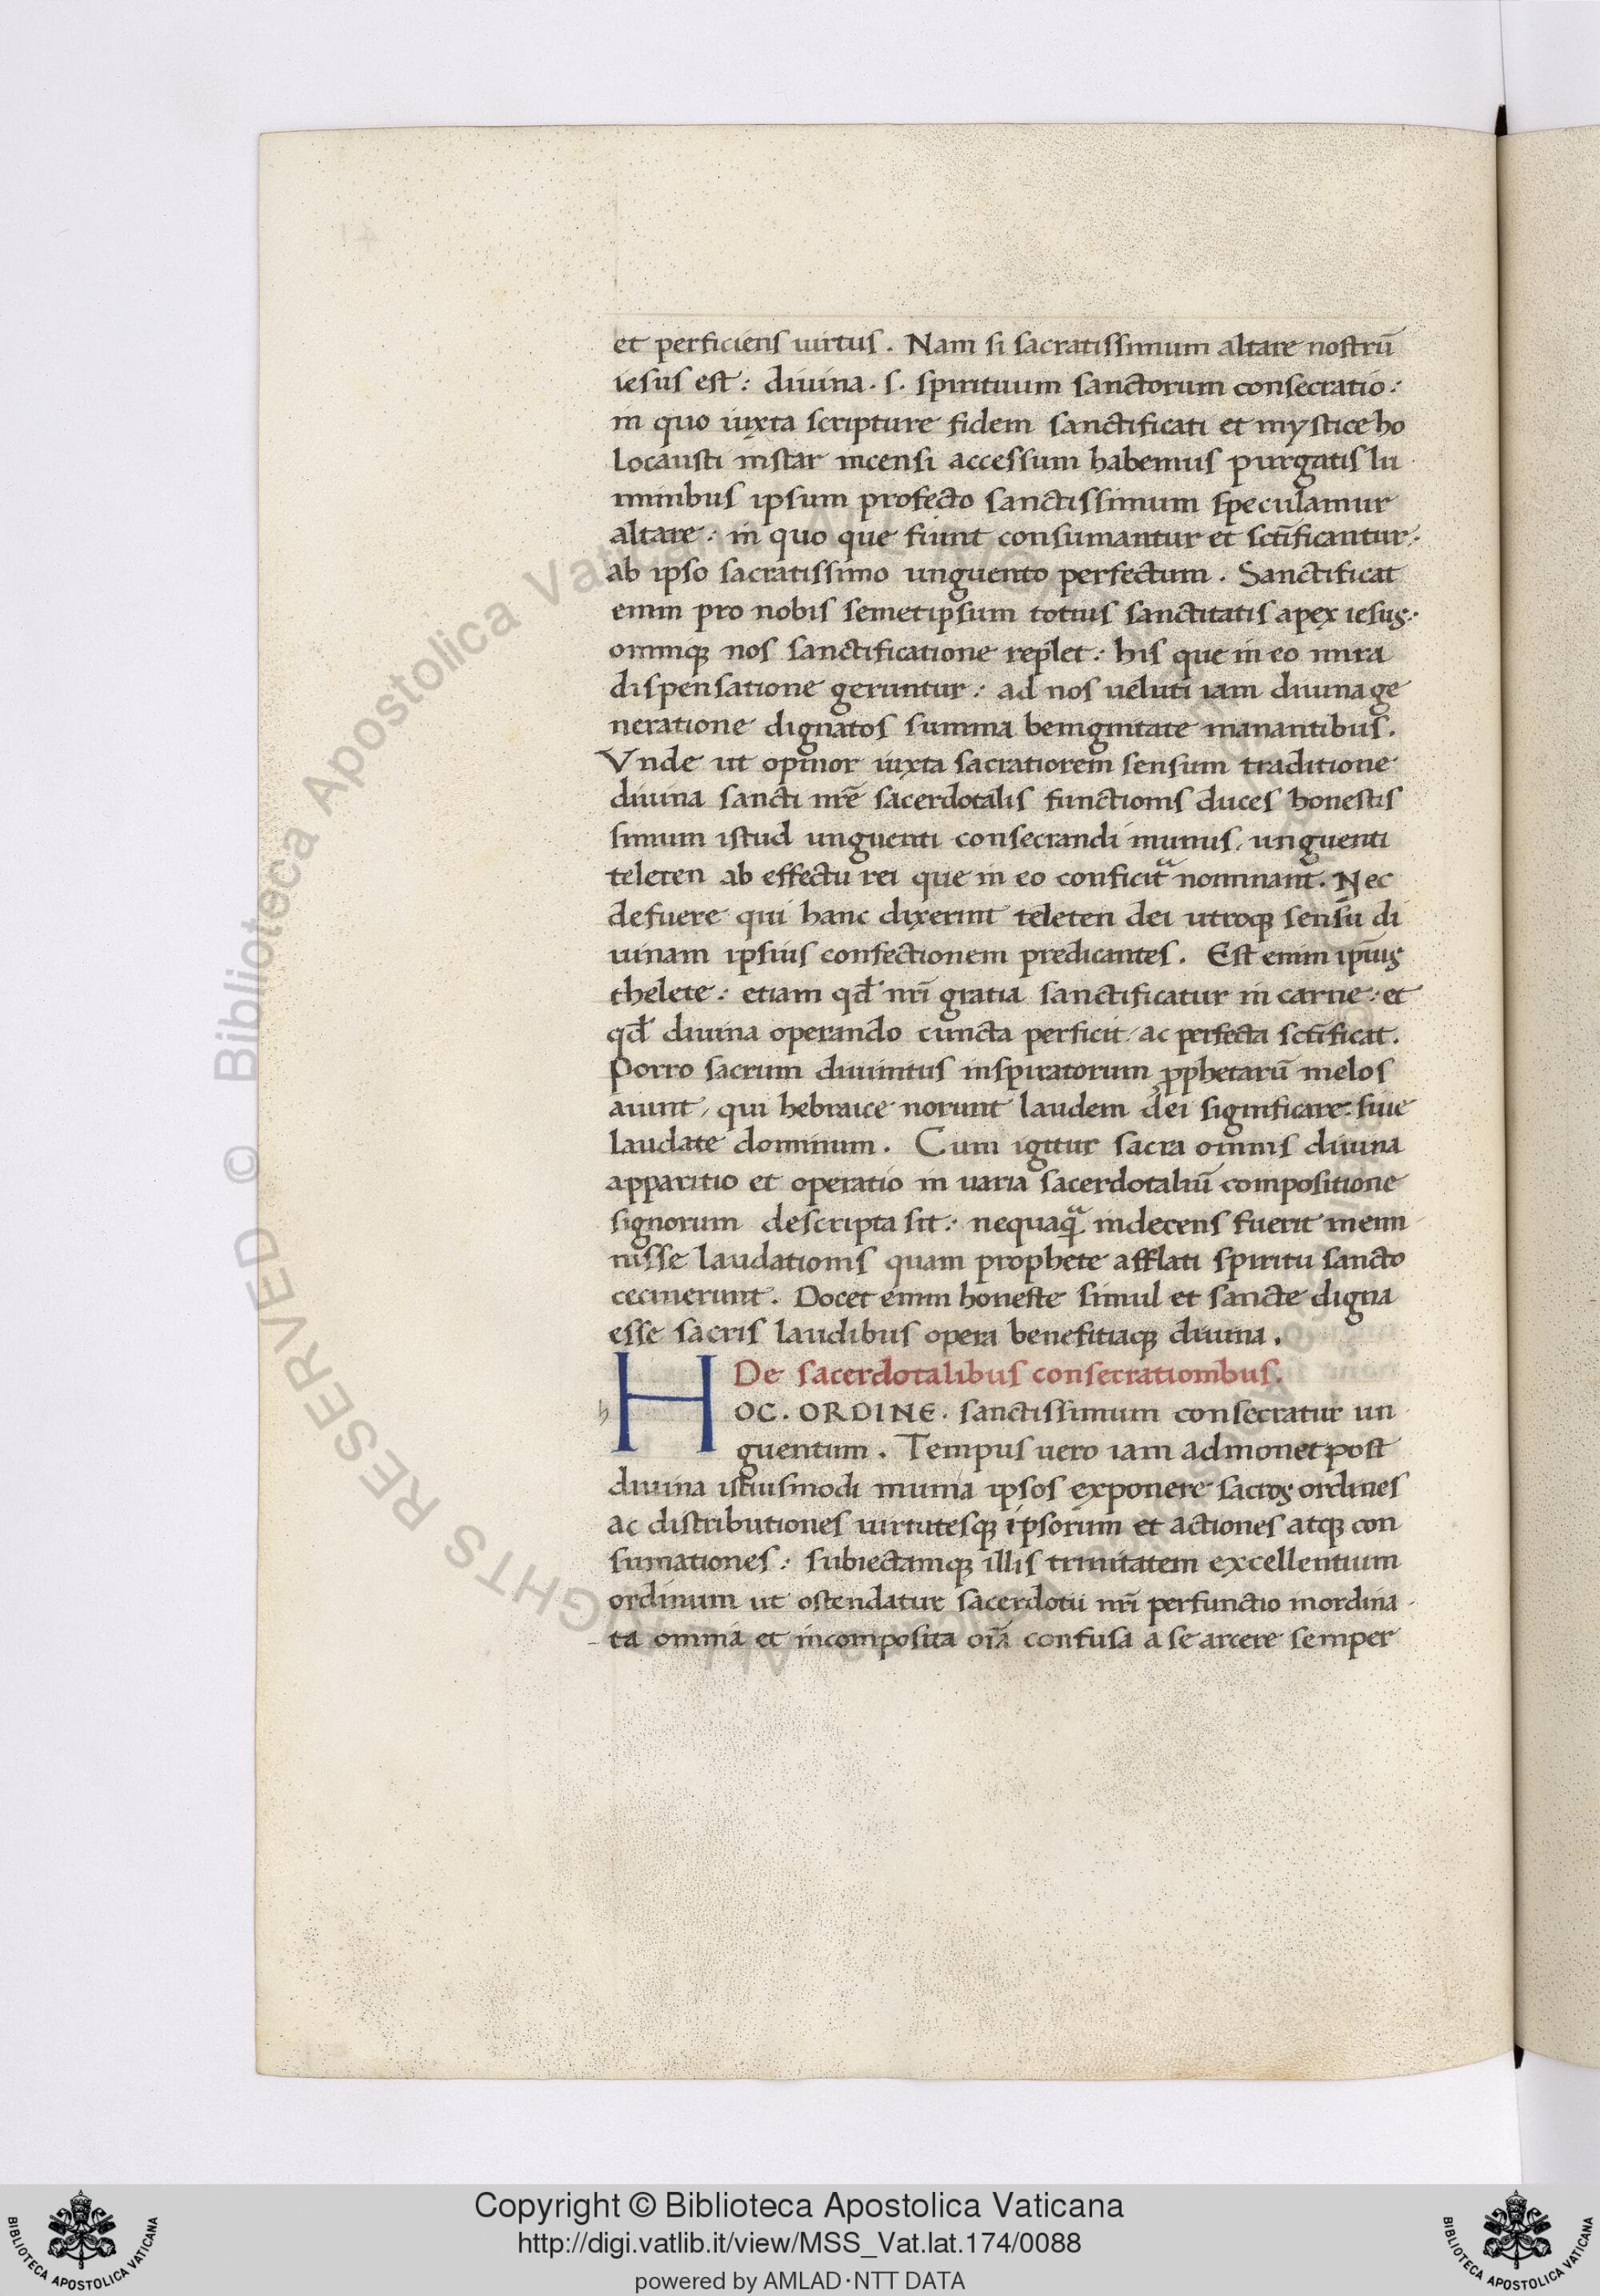 et perficiens uirtus. Nam si sacratissimum altare nostrū
iesus est: diuina .s. spirituum sanctorum consecratio:
in quo iuxta scripture fidem sanctificati et mystice ho
locausti instar incensi accessum habemus purgatis lu
minibus ipsum profecto sanctissimum speculamur
altare: in quo que fiunt consumantur et sctīficantur:
ab ipso sacratissimo unguento perfectum. Sanctificat
enim pro nobis semetipsum totius sanctitatis apex iesus:
omniqꝫ nos sanctificatione replet: his que in eo mira
dispensatione geruntur: ad nos ueluti iam diuina ge
neratione dignatos summa benignitate manantibus.
Vnde ut opinor iuxta sacratiorem sensum traditione
diuina sancti nrē sacerdotalis functionis duces honestis
simum istud unguenti consecrandi munus, unguenti
teleten ab effectu rei que in eo conficitᷓ nominant. Nec
defuere qui hanc dixerint teleten dei utroqꝫ sensu di
uinam ipsius confectionem predicantes. Est enim ip̄ius
thelete: etiam qd̄ nrī gratia sanctificatur in carne: et
qd̄ diuina operando cuncta perficit, ac perfecta sctīficat.
Porro sacrum diuinitus inspiratorum ꝓphetarū melos
aiunt, qui hebraice norunt laudem dei significare: siue
laudate dominum. Cum igitur sacra omnis diuina
apparitio et operatio in uaria sacerdotaliū compositione
signorum descripta sit: nequaqᷓ indecens fuerit memi
nisse laudationis quam prophete afflati spiritu sancto
cecinerunt. Docet enim honeste simul et sancte digna
esse sacris laudibus opera benefitiaqꝫ diuina.
De sacerdotalibus consecrationibus.
h HOC. ORDINE. sanctissimum consecratur un
guentum. Tempus uero iam admonet post
diuina istiusmodi munia ipsos exponere sacros ordines
ac distributiones uirtutesqꝫ ipsorum et actiones atqꝫ con
sumationes: subiectamqꝫ illis trinitatem excellentium
ordinum ut ostendatur sacerdotii nrī perfunctio inordina
ta omnia et incomposita oīa confusa a se arcere semper
© Biblioteca Apostolica Vaticana
ALL RIGHTS RESERVED
Copyright © Biblioteca Apostolica Vaticana
http://digi.vatlib.it/view/MSS_Vat.lat.174/0088
powered by AMLAD·NTT DATA
BIBLIOTECA APOSTOLICA VATICANA
BIBLIOTECA APOSTOLICA VATICANA